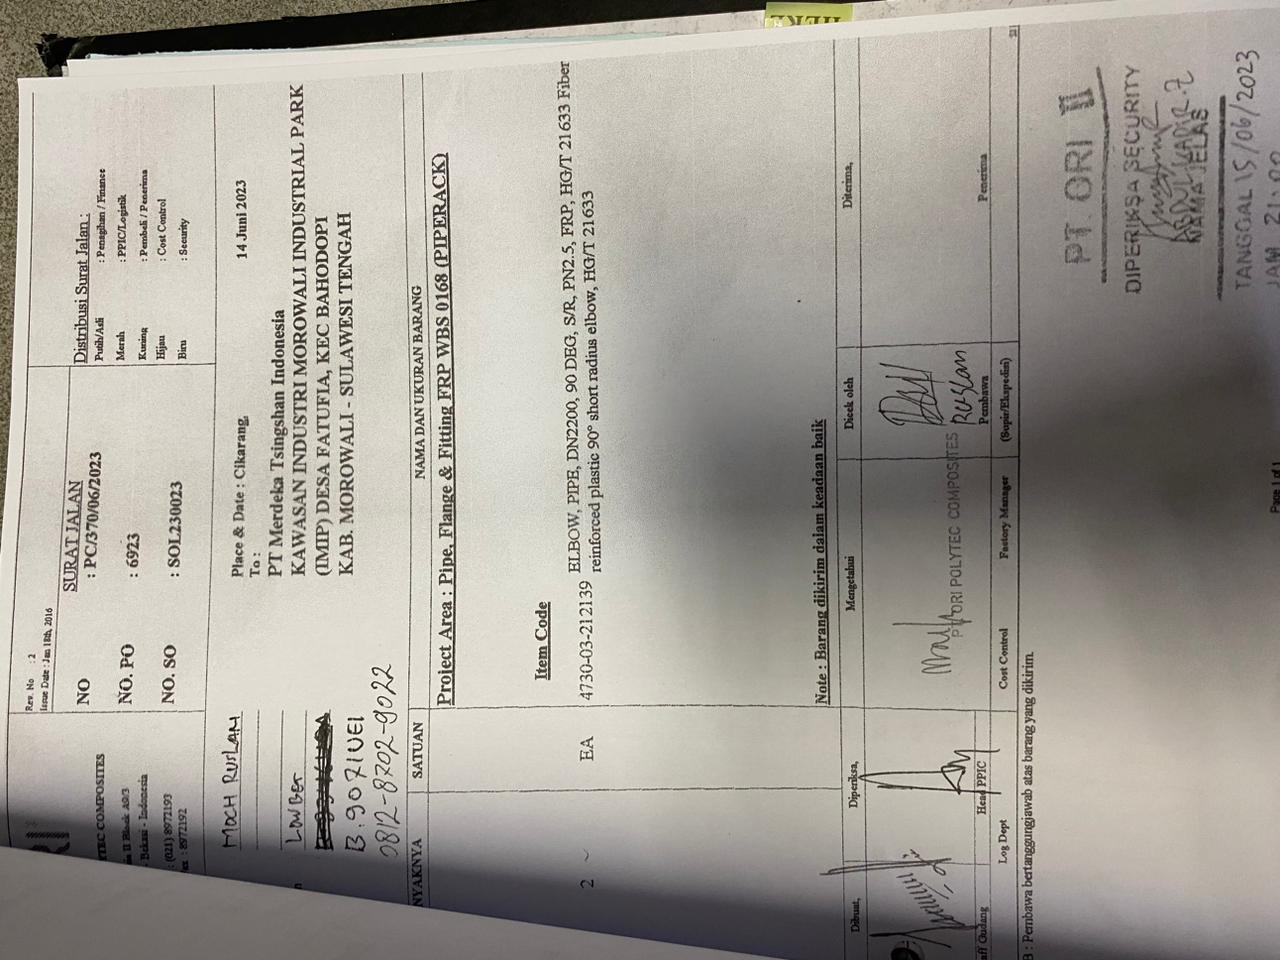 HERE
Rev. No : 2
Issue Date : Jan 18th, 2016
SURAT JALAN
NO : PC/370/06/2023
NO. PO : 6923
NO. SO : SOL230023
Distribusi Surat Jalan :
Putih/Asli : Penagihan / Finance
Merah : PPIC/Logistik
Kuning : Pembeli / Penerima
Hijau : Cost Control
Biru : Security
TEC COMPOSITES
II Block A0/3
Bekasi - Indonesia
: (021) 8972193
: 8972192
MOCH RUSLAM
LOWBER
B.9071UEI
0812-8702-9022
Place & Date : Cikarang, 14 Juni 2023
To :
PT Merdeka Tsingshan Indonesia
KAWASAN INDUSTRI MOROWALI INDUSTRIAL PARK
(IMIP) DESA FATUFIA, KEC BAHODOPI
KAB. MOROWALI - SULAWESI TENGAH
NYAKNYA SATUAN NAMA DAN UKURAN BARANG
Project Area : Pipe, Flange & Fitting FRP WBS 0168 (PIPERACK)
Item Code
2 EA 4730-03-212139 ELBOW, PIPE, DN2200, 90 DEG, S/R, PN2.5, FRP, HG/T 21633 Fiber
reinforced plastic 90° short radius elbow, HG/T 21633
Note : Barang dikirim dalam keadaan baik
Dibuat, Diperiksa, Mengetahui Dicek oleh Diterima,
PT ORI POLYTEC COMPOSITES
Ruslan
aff Gudang Head PPIC Pembawa Penerima
Log Dept Cost Control Factory Manager (Supir/Ekspedisi)
B : Pembawa bertanggungjawab atas barang yang dikirim.
PT. ORI II
DIPERIKSA SECURITY
NAMA JELAS
TANGGAL 15/06/2023
JAM
Page 1 of 1